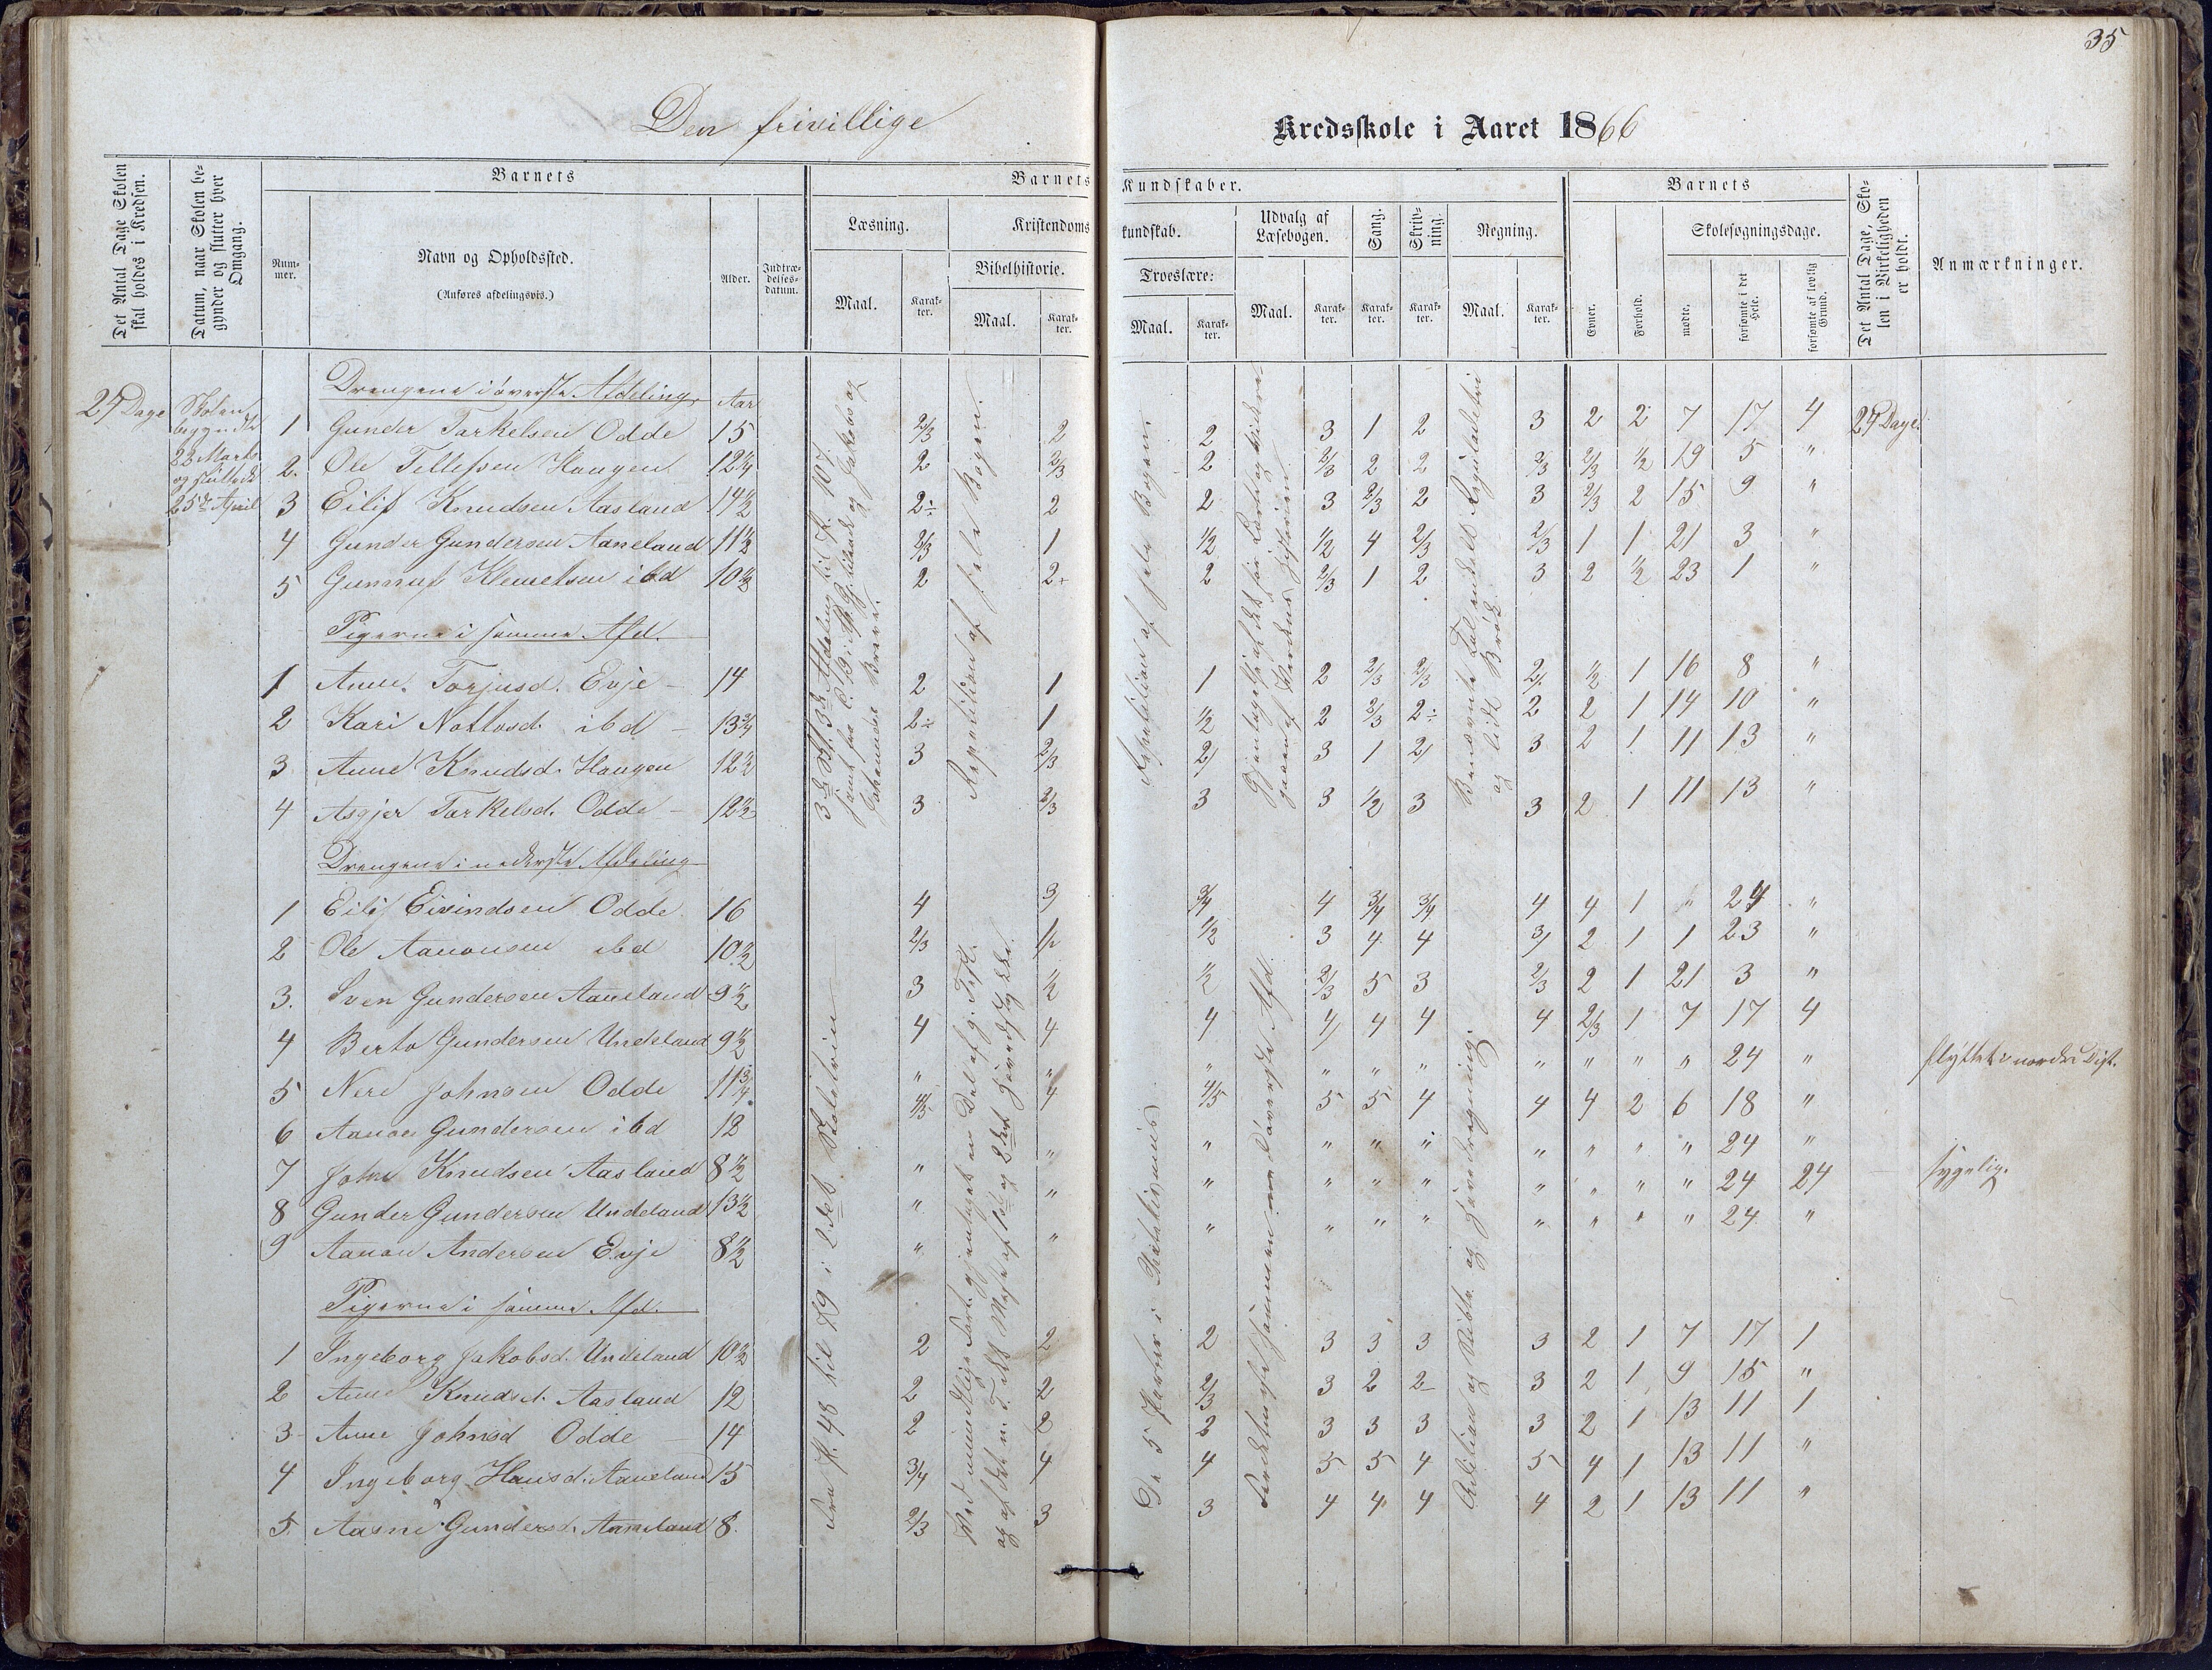 35
Den frivillige Kredsskole i Aaret 1866
Det Antal Dage Skolen skal holdes i Kredsen.
Datum, naar Skolen begynder og slutter hver Omgang.
Barnets
Nummer.
Navn og Opholdssted.
(Anføres afdelingsvis.)
Alder.
Indtrædelsesdatum.
Barnets Kundskaber.
Læsning.
Maal.
Karakter.
Kristendomskundskab.
Bibelhistorie.
Maal.
Karakter.
Troeslære:
Maal.
Karakter.
Udvalg af Læsebogen.
Maal.
Karakter.
Sang.
Karakter.
Skrivning.
Karakter.
Regning.
Maal.
Karakter.
Barnets
Evner.
Forhold.
Skolesøgningsdage.
mødte.
forsømte i det Hele.
forsømte af lovlig Grund.
Det Antal Dage, Skolen i Virkeligheden er holdt.
Anmærkninger.
24 Dage
Skolen
begyndte
22 Marts
og sluttede
25de April
Drengene i øverste Afdeling. Aar
1 Gunder Tarkelsen Odde 15 2/3 2 2 3 1 2 3 2 2 7 17 4 24 Dage
2. Ole Tellefsen Haugen 12 1/4 2 2/3 2 2/3 2 2 2/3 2/3 1/2 19 5 "
3 Eilif Knudsen Aasland 14 1/2 2÷ 2 2 3 2/3 2 3 2/3 2 15 9 "
4 Gunder Gundersen Aaneland 11 1/2 2/3 1 1/2 1/2 4 2/3 2/3 1 1 21 3 "
5 Gunnuf Klemetsen ibd 10 1/2 2 2+ 2 2/3 1 2 3 2 1/2 23 1 "
Pigerne i samme Afd.
1 Anne Torjusd. Evje 14 2 1 1 2 2/3 2/3 2/ 1/2 1 16 8 "
2 Kari Notlosd. ibd 13 3/4 2÷ 1 1/2 2 2/3 2÷ 2 2 1 14 10 "
3 Anne Knudsd. Haugen 12 1/2 3 2/3 2/ 3 1 2/ 3 2 1 11 13 "
4 Asgjer Tarkelsd. Odde 12 1/2 3 2/3 3 3 1/2 3 3 2 1 11 13 "
Drengene i nederste Afdeling
1 Eilif Eivindsen Odde 16 4 3/ 3/4 4 3/4 3/4 4 4 1 " 24 "
2 Ole Aanonsen ibd 10 1/2 2/3 1/2 1/2 3 4 4 3/ 2 1 1 23 "
3. Sven Gundersen Aaneland 9 1/2 3 1/2 1/2 2/3 5 3 2/3 2 1 21 3 "
4 Berto Gundersen Undeland 9 1/2 4 4 4 4/ 4 4 4 2/3 1 7 17 4
5 Nere Johnsen Odde 11 3/4 " " " " " " " " " " 24 " flyttet i nordre Dist.
6 Aanon Gundersen ibd 12 4/5 4 4/5 5 5 4 4 4 2 6 18 "
7 John Knudsen Aasland 8 1/2 " " " " " " " " " " 24 "
8 Gunder Gundersen Undeland 13 1/2 " " " " " " " " " " 24 24 sygelig.
9 Aanon Andersen Evje 8 1/2 " " " " " " " " " " 24 "
Pigerne i samme Afd.
1 Ingeborg Jakobsd. Undeland 10 1/2 2 2 2 3 3 3 3 2 1 7 17 1
2 Anne Knudsd. Aasland 12 2 2 2/3 3 2 2- 3 2 1 9 15 "
3 Anne Johnsd Odde 14 2 2 2 3 3 3 3 2 1 13 11 1
4 Ingeborg Hansd. Aaneland 15 3/4 4 4 5 5 4 5 4 1 13 11 "
5. Aasne Gundersd. Aaneland 8. 2/3 3 3 4 4 4 4 2 1 13 11 "
Johannes Breve.
Fra St. 48 til 79 i 2det Skoletrin
Repetition af hele Bogen.
Repetition af hele Bogen
De 5 Parter i Katekismus
og lidt Brøk.